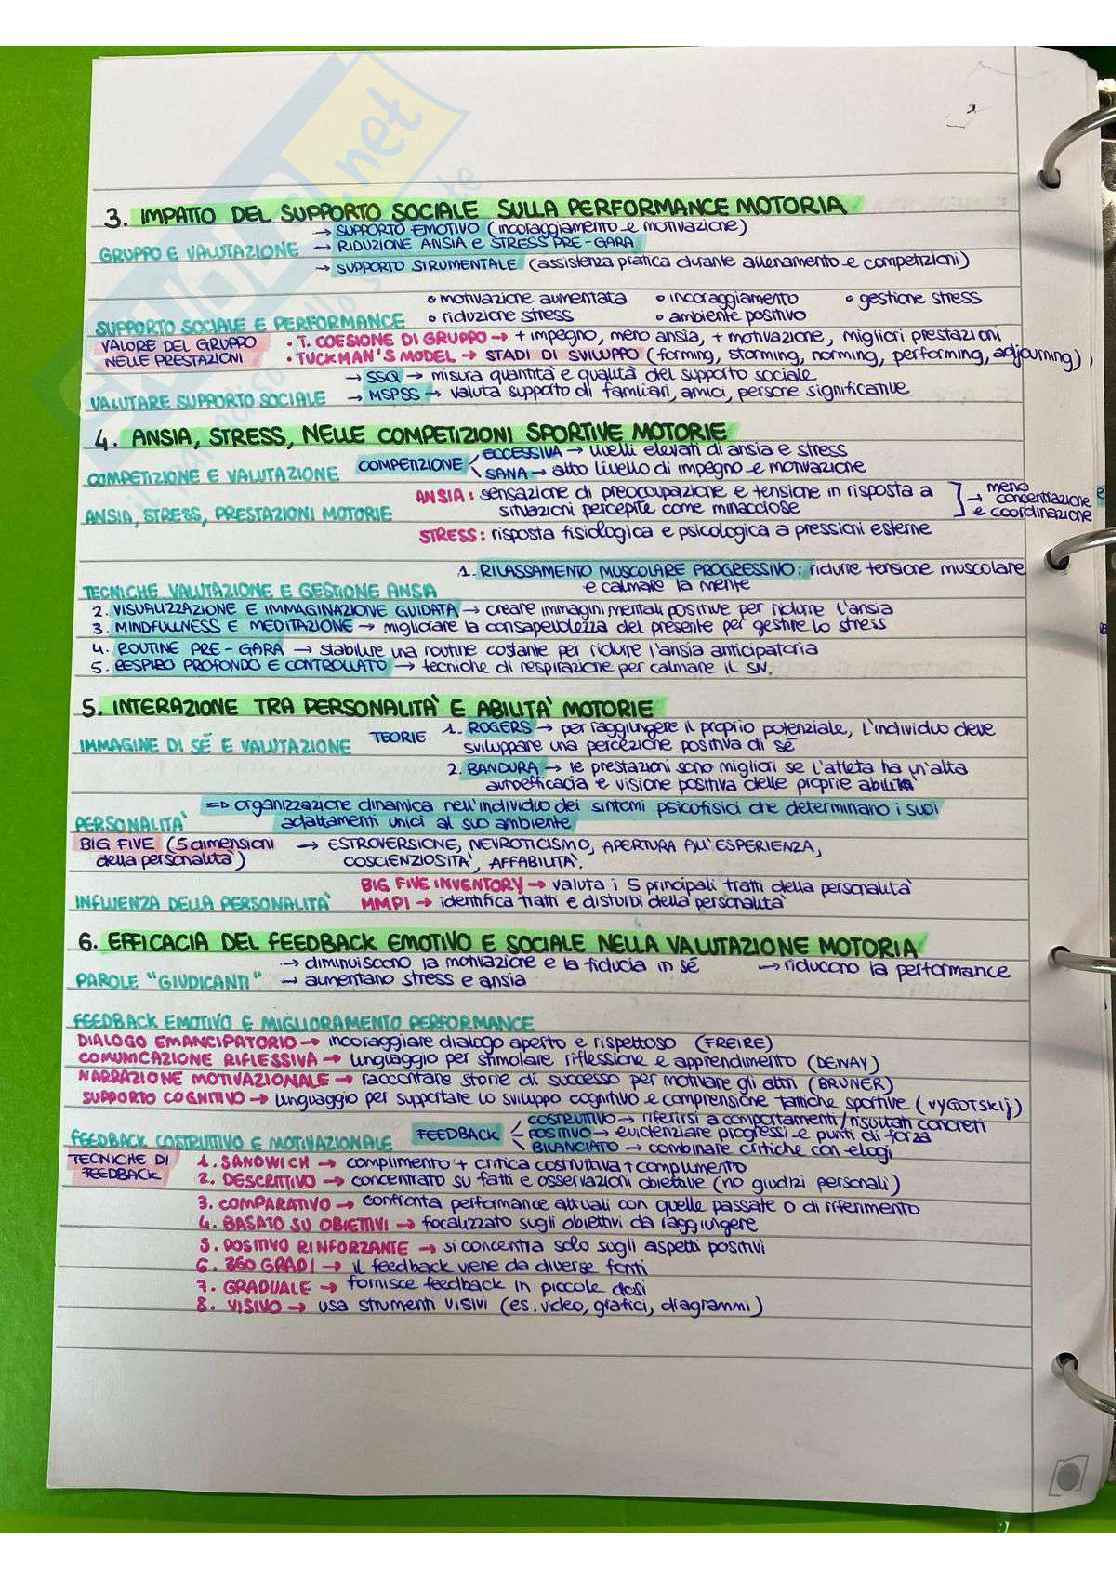 3. IMPATTO DEL SUPPORTO SOCIALE SULLA PERFORMANCE MOTORIA
GRUPPO E VALUTAZIONE → SUPPORTO EMOTIVO (incoraggiamento e motivazione)
→ RIDUZIONE ANSIA E STRESS PRE-GARA
→ SUPPORTO STRUMENTALE (assistenza pratica durante allenamento e competizioni)
SUPPORTO SOCIALE E PERFORMANCE • motivazione aumentata • incoraggiamento • gestione stress
• riduzione stress • ambiente positivo
VALORE DEL GRUPPO NELLE PRESTAZIONI • T. COESIONE DI GRUPPO → + impegno, meno ansia, + motivazione, migliori prestazioni
• TUCKMAN'S MODEL → STADI DI SVILUPPO (forming, storming, norming, performing, adjourning)
VALUTARE SUPPORTO SOCIALE → SSQ → misura quantità e qualità del supporto sociale
→ MSPSS → valuta supporto di familiari, amici, persone significative
4. ANSIA, STRESS, NELLE COMPETIZIONI SPORTIVE MOTORIE
COMPETIZIONE E VALUTAZIONE COMPETIZIONE ECCESSIVA → livelli elevati di ansia e stress
SANA → alto livello di impegno e motivazione
ANSIA, STRESS, PRESTAZIONI MOTORIE ANSIA: sensazione di preoccupazione e tensione in risposta a
situazioni percepite come minacciose → meno concentrazione e coordinazione
STRESS: risposta fisiologica e psicologica a pressioni esterne
TECNICHE VALUTAZIONE E GESTIONE ANSIA 1. RILASSAMENTO MUSCOLARE PROGRESSIVO: ridurre tensione muscolare
e calmare la mente
2. VISUALIZZAZIONE E IMMAGINAZIONE GUIDATA → creare immagini mentali positive per ridurre l'ansia
3. MINDFULLNESS E MEDITAZIONE → migliorare la consapevolezza del presente per gestire lo stress
4. ROUTINE PRE-GARA → stabilire una routine costante per ridurre l'ansia anticipatoria
5. RESPIRO PROFONDO E CONTROLLATO → tecniche di respirazione per calmare il SN.
5. INTERAZIONE TRA PERSONALITA' E ABILITA' MOTORIE
IMMAGINE DI SÉ E VALUTAZIONE TEORIE 1. ROGERS → per raggiungere il proprio potenziale, l'individuo deve
sviluppare una percezione positiva di sé
2. BANDURA → le prestazioni sono migliori se l'atleta ha un'alta
autoefficacia e visione positiva delle proprie abilità
PERSONALITA' => organizzazione dinamica nell'individuo dei sintomi psicofisici che determinano i suoi
adattamenti unici al suo ambiente
BIG FIVE (5 dimensioni della personalità) → ESTROVERSIONE, NEVROTICISMO, APERTURA ALL'ESPERIENZA,
COSCIENZIOSITA', AFFABILITA'.
INFLUENZA DELLA PERSONALITA' BIG FIVE INVENTORY → valuta i 5 principali tratti della personalità
MMPI → identifica tratti e disturbi della personalità
6. EFFICACIA DEL FEEDBACK EMOTIVO E SOCIALE NELLA VALUTAZIONE MOTORIA
PAROLE "GIUDICANTI" → diminuiscono la motivazione e la fiducia in sé → riducono la performance
→ aumentano stress e ansia
FEEDBACK EMOTIVO E MIGLIORAMENTO PERFORMANCE
DIALOGO EMANCIPATORIO → incoraggiare dialogo aperto e rispettoso (FREIRE)
COMUNICAZIONE RIFLESSIVA → linguaggio per stimolare riflessione e apprendimento (DEWAY)
NARRAZIONE MOTIVAZIONALE → raccontare storie di successo per motivare gli altri (BRUNER)
SUPPORTO COGNITIVO → linguaggio per supportare lo sviluppo cognitivo e comprensione tattiche sportive (VYGOTSKIJ)
FEEDBACK COSTRUTTIVO E MOTIVAZIONALE FEEDBACK COSTRUTTIVO → riferirsi a comportamenti/risultati concreti
POSITIVO → evidenziare progressi e punti di forza
BILANCIATO → combinare critiche con elogi
TECNICHE DI FEEDBACK 1. SANDWICH → complimento + critica costruttiva + complimento
2. DESCRITTIVO → concentrato su fatti e osservazioni obiettive (no giudizi personali)
3. COMPARATIVO → confronta performance attuali con quelle passate o di riferimento
4. BASATO SU OBIETTIVI → focalizzato sugli obiettivi da raggiungere
5. POSITIVO RINFORZANTE → si concentra solo sugli aspetti positivi
6. 360 GRADI → il feedback viene da diverse fonti
7. GRADUALE → fornisce feedback in piccole dosi
8. VISIVO → usa strumenti visivi (es. video, grafici, diagrammi)